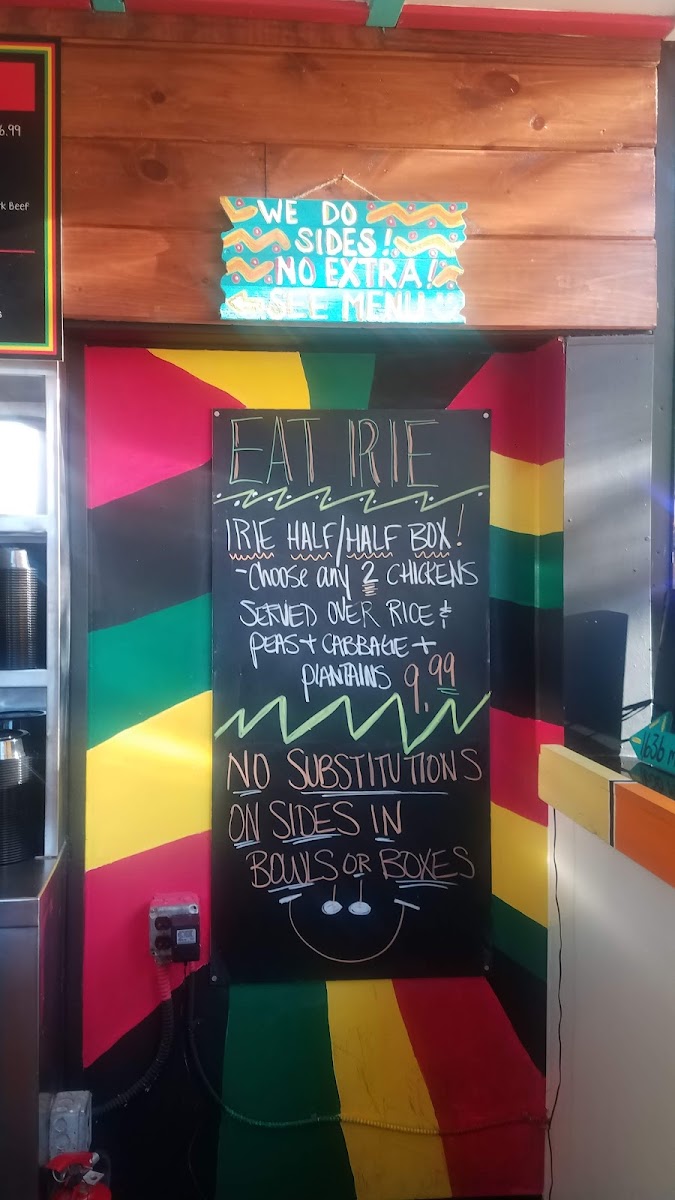 6.99
rk Beef
WE DO
SIDES!
NO EXTRA!
SEE MENU!
EAT IRIE
IRIE HALF/HALF BOX!
-Choose any 2 CHICKENS
SERVED OVER RICE &
PEAS + CABBAGE +
PLANTAINS 9.99
NO SUBSTITUTIONS
ON SIDES IN
BOWLS OR BOXES
1636 m